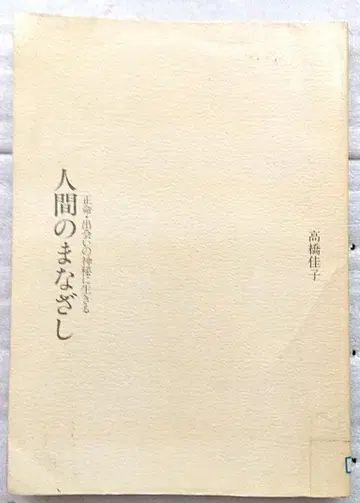 高橋佳子
正命・出会いの神秘に生きる
人間のまなざし